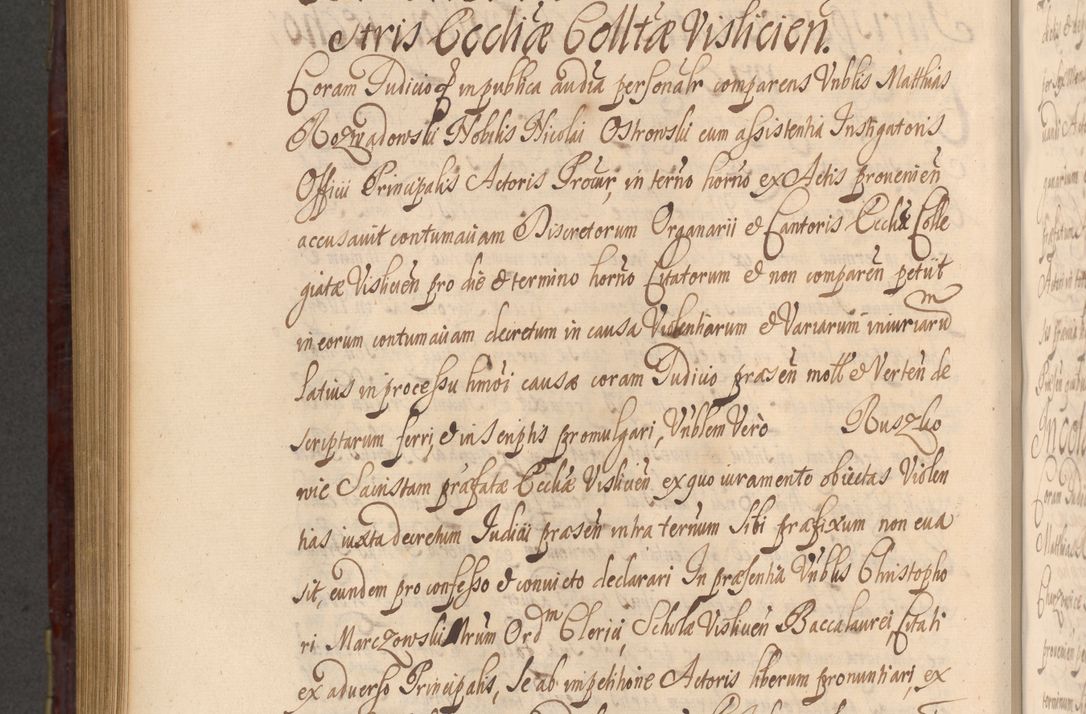 stris Eccliæ Colltæ Vislicien̄.
Coram Judicio q̄ in publica audīa personalr̄ comparens Vnblis Matthias
Rozwadowski Nobilis Nicolai Ostrowski cum assistentia Instigatoris
Officii Principalis Actoris Procur, in term̄o horn̄o ex Actis provenien̄
accusavit contumaciam Discretorum Organarii et Cantoris Eccliæ Colle
giatæ Vislicien̄ pro die et termino horn̄o Citatorum et non comparen̄ petiit
in eorum contumaciam decretum in causa Violentiarum et Variarum iniuriarū
latius in processu hmōi causæ coram Judicio præsen̄ mott et Verten̄ de
scriptarum ferri, et in scriptis promulgari, Vnblem Verò Buszko
wic Sacristam præfatæ Eccliæ Vislicien̄ ex quo iuramento obiectas Violen
tias iuxta decretum Judicii præsen̄ intra termīnum sibi præfixum non eva
sit, eundem pro confesso et convicto declarari In præsentia Vnblis Christopho
ri Marczowski Mrūm Ordm Clerici, Scholæ Vislicien̄ Baccalaurei Citati
ex adverso Principalis, se ab impetitione Actoris liberum pronuntiari, ex